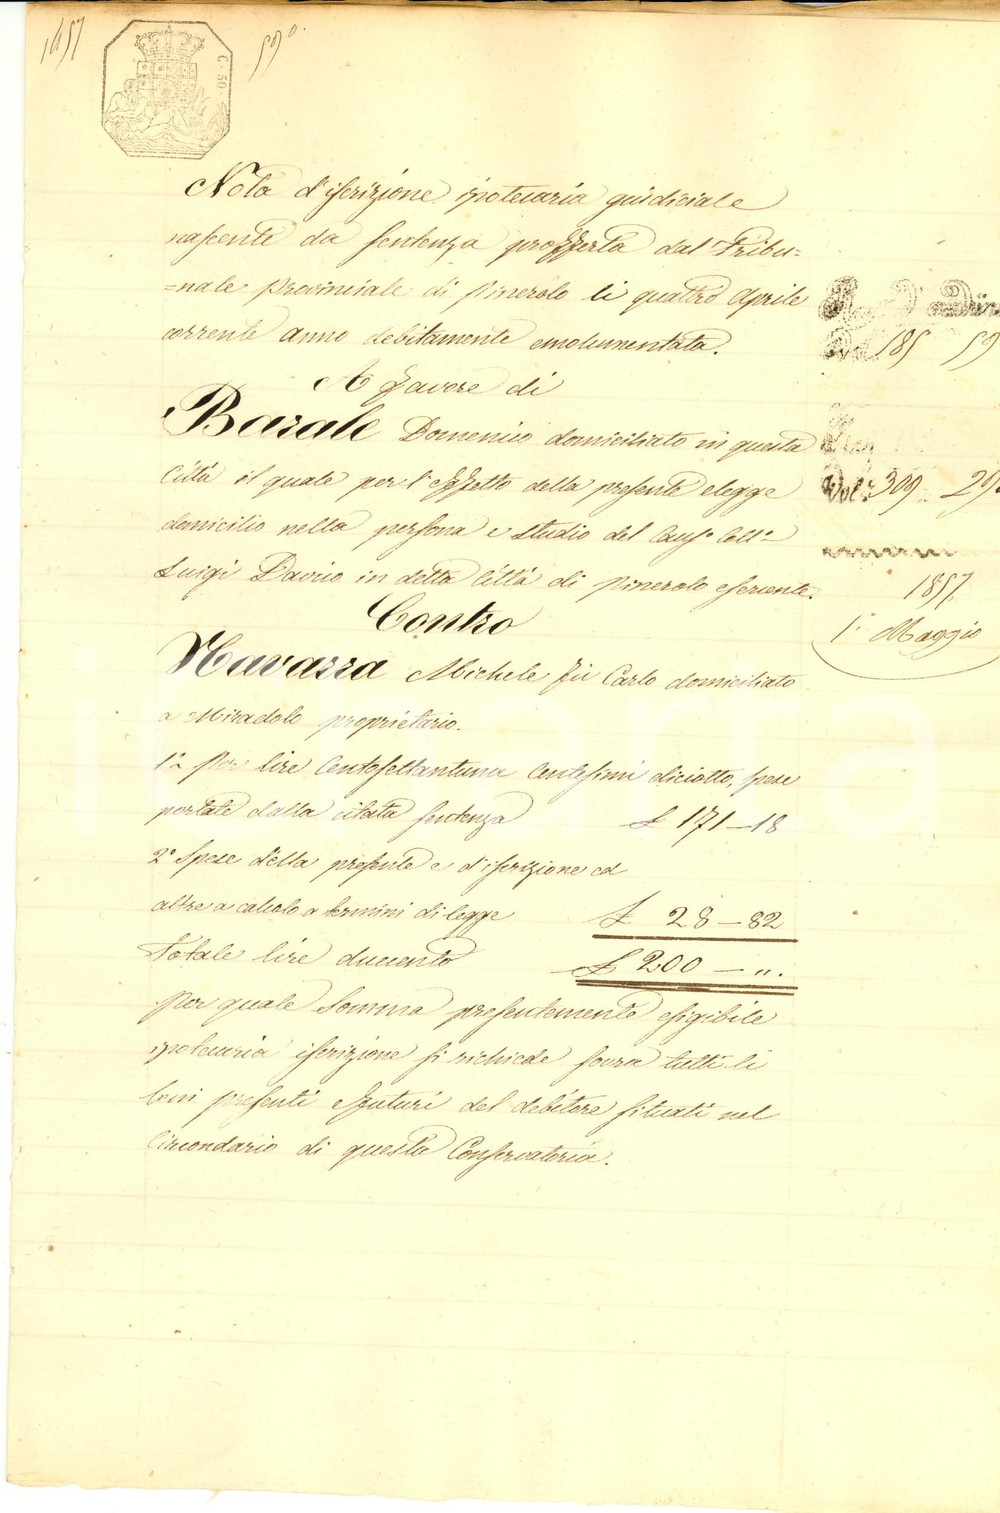 1857
590.
C. 50
Nota d'iscrizione ipotecaria giudiciale
nascente da sentenza profferta dal Tribu=
=nale Provinciale di Pinerolo li quattro Aprile
corrente anno debitamente emolumentata.
A favore di
Barale Domenico domiciliato in questa
Città il quale per l'effetto della presente elegge
domicilio nella persona e studio del Caus.o Coll.o
Luigi Davico in detta Città di Pinerolo esercente.
Contro
Navazza Michele fu Carlo domiciliato
a Miradolo proprietario.
1.a Per lire Centosettantuna Centesimi diciotto, spese
portate dalla citata sentenza £ 171-18
2.a Spese della presente e d'iscrizione ed
altre a calcolo a termini di legge £ 28-82
Totale lire duecento £ 200 - ".
Per quale Somma presentemente esigibile
ipotecaria iscrizione si richiede sovra tutti li
beni presenti e futuri del debitore situati nel
Circondario di questa Conservatoria.
185 59
Vol. 309 29
1857
1.o Maggio